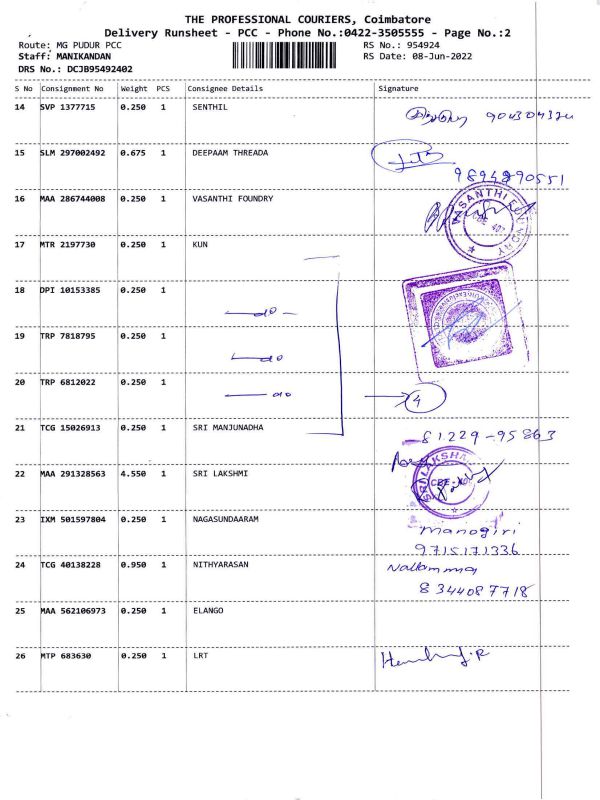 THE PROFESSIONAL COURIERS, Coimbatore
Delivery Runsheet - PCC - Phone No.:0422-3505555 - Page No.:2
Route: MG PUDUR PCC RS No.: 954924
Staff: MANIKANDAN RS Date: 08-Jun-2022
DRS No.: DCJB95492402
S No Consignment No Weight PCS Consignee Details Signature
14 SVP 1377715 0.250 1 SENTHIL
15 SLM 297002492 0.675 1 DEEPAAM THREADA
9894290551
16 MAA 286744008 0.250 1 VASANTHI FOUNDRY
VASANTHI FOUNDRY
17 MTR 2197730 0.250 1 KUN
18 DPI 10153385 0.250 1
do
19 TRP 7818795 0.250 1
do
20 TRP 6812022 0.250 1
do 4
21 TCG 15026913 0.250 1 SRI MANJUNADHA
81229-95863
22 MAA 291328563 4.550 1 SRI LAKSHMI
23 IXM 501597804 0.250 1 NAGASUNDAARAM
manogiri
9715171336
24 TCG 40138228 0.950 1 NITHYARASAN
Nallamma
8344087718
25 MAA 562106973 0.250 1 ELANGO
26 MTP 683630 0.250 1 LRT